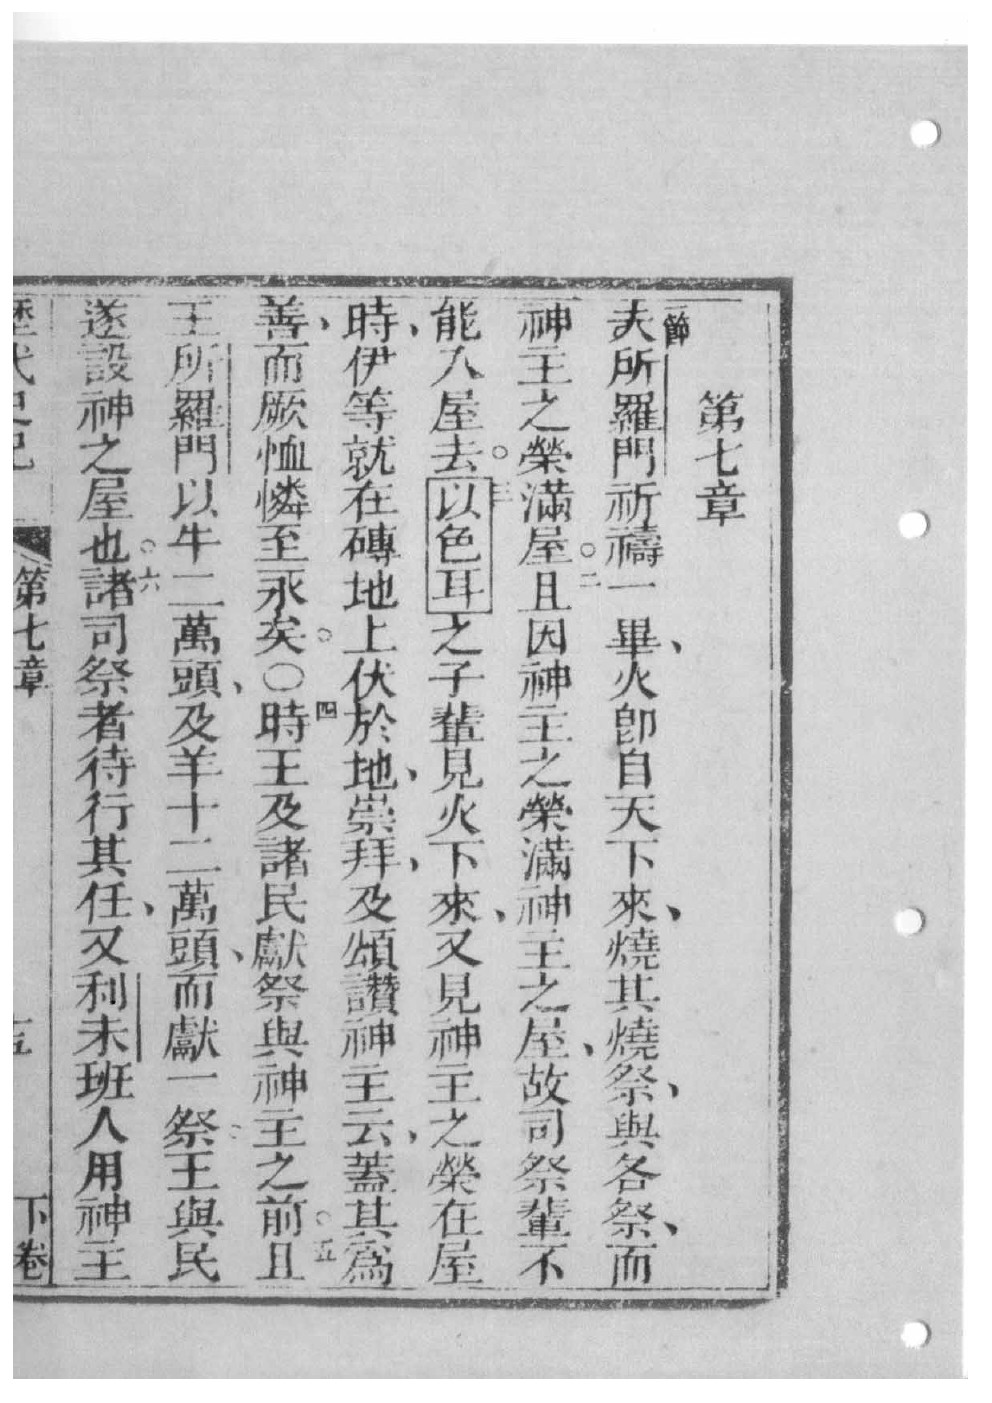 第七章
一節夫所羅門祈禱一畢、火卽自天下來、燒其燒祭、與各祭、而
神主之榮滿屋。二且因神主之榮滿神主之屋、故司祭輩不
能入屋去。三以色耳之子輩見火下來、又見神主之榮在屋
時、伊等就在磚地上伏於地、崇拜、及頌讚神主云、蓋其爲
善、而厥恤憐至永矣。○四時王及諸民獻祭與神主之前。五且
王所羅門以牛二萬頭、及羊十二萬頭、而獻一祭、王與民
遂設神之屋也。六諸司祭者待行其任、又利未班人用神主
歷代史記 第七章 五 下卷